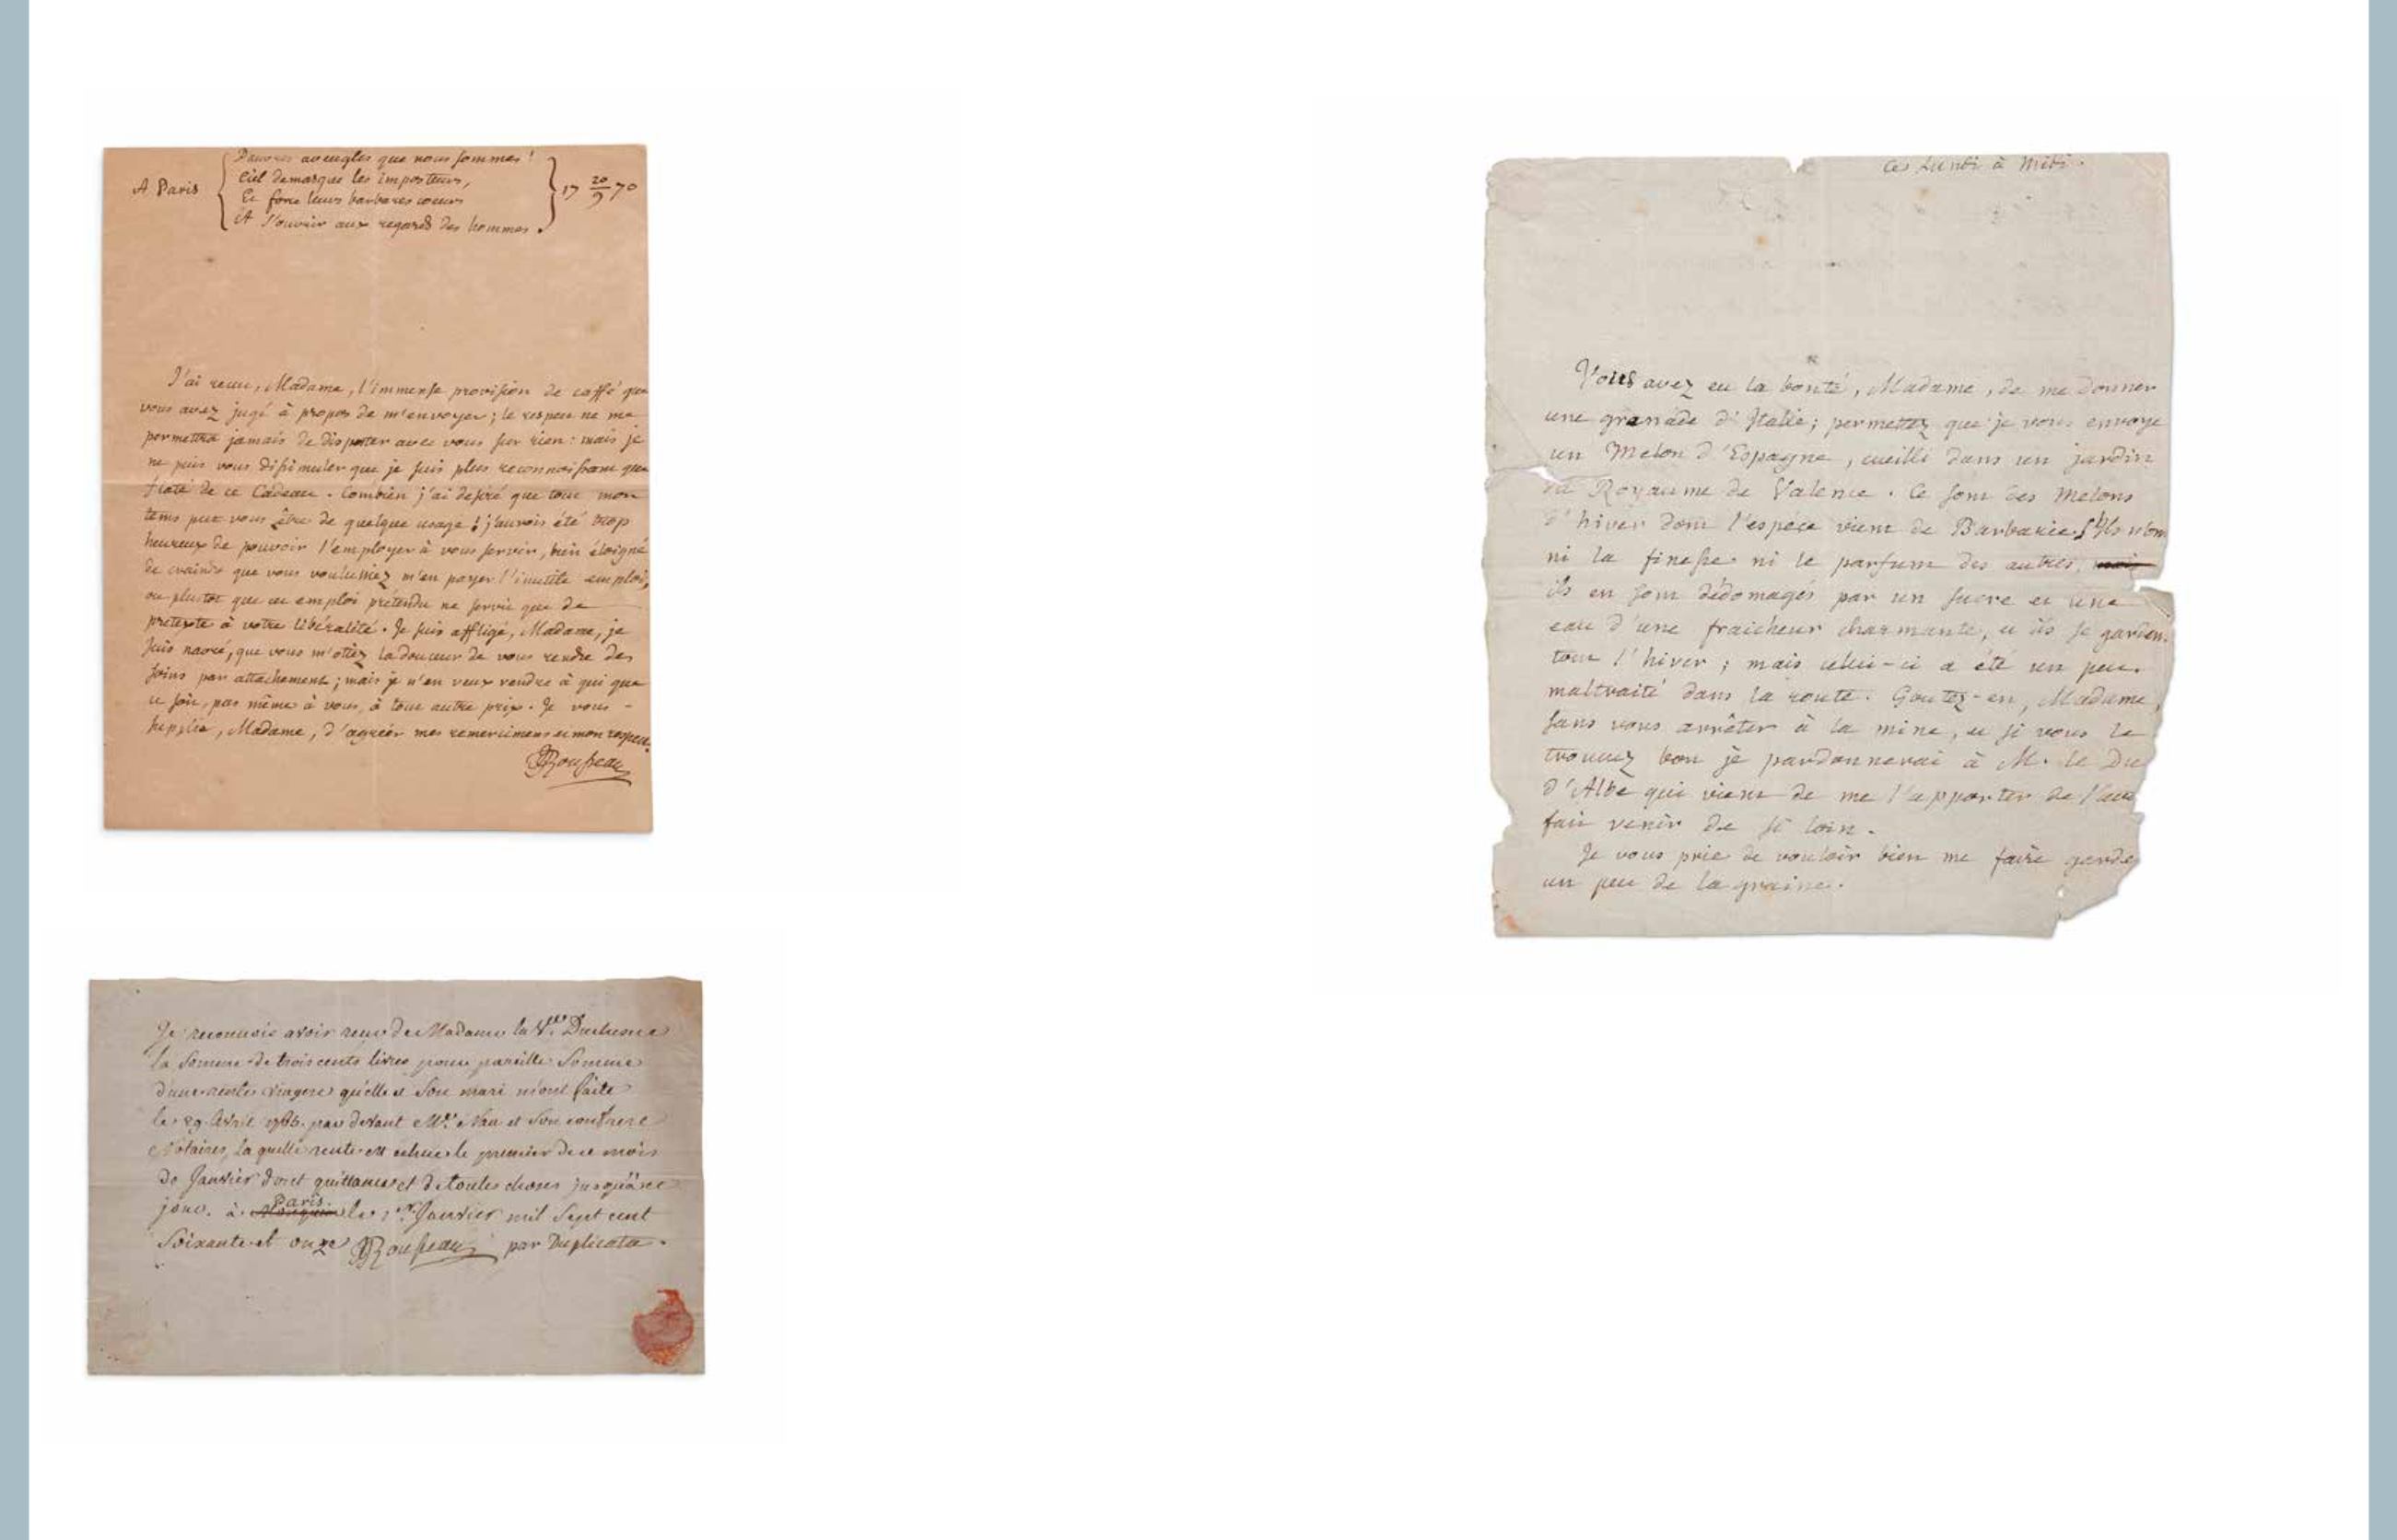 A Paris
Pauvres aveugles que nous sommes !
Ciel demasque les imposteurs,
Et force leurs barbares coeurs
A s'ouvrir aux regards des hommes.
17 20/9 70
J'ai receu, Madame, l'immense provision de caffé que
vous avez jugé à propos de m'envoyer ; le respect ne me
permettra jamais de disputer avec vous sur rien : mais je
ne puis vous dissimuler que je suis plus reconnoissant que
flaté de ce Cadeau. Combien j'ai desiré que tout mon
tems put vous être de quelque usage ; j'aurois été trop
heureux de pouvoir l'employer à vous servir, bien éloigné
de craindre que vous voulussiez m'en payer l'inutile emploi,
ou plustot que cet emploi prétendu ne servit que de
pretexte à votre libéralité. Je suis affligé, Madame, je
suis navré, que vous m'otiez la douceur de vous rendre des
soins par attachement ; mais je n'en veux vendre à qui que
ce soit, pas même à vous, à tout autre prix. Je vous
supplie, Madame, d'agréer mes remercimens et mon respect.
JJRousseau
Je reconnois avoir receu de Madame la Vve Duchesne
la Somme de trois cents livres pour pareille Somme
d'une rente viagere qu'elle et Son mari m'ont faite
le 29 Avril 1765. par devant Me. Nau et Son confrere
Notaires, la quelle rente est échue le premier de ce mois
de Janvier dont quittance et de toutes choses jusqu'à ce
jour. à Paris le 1er. Janvier mil Sept cent
Soixante et onze JJRousseau par Duplicata.
Ce Lundi à Midi.
Vous avez eu la bonté, Madame, de me donner
une grenade d'Italie ; permettez que je vous envoye
un Melon d'Espagne, cueilli dans un jardin
du Royaume de Valence. Ce sont des Melons
d'hiver dont l'espéce vient de Barbarie. Ils n'ont
ni la finesse ni le parfum des autres, mais
ils en sont dédomagés par un sucre et une
eau d'une fraicheur charmante, et ils se garden
tout l'hiver ; mais celui-ci a été un peu
maltraité dans la route. Goutez-en, Madame,
sans vous arrêter à la mine, et si vous le
trouvez bon je pardonnerai à M. le Du
d'Albe qui vient de me l'apporter de l'avo
fait venir de si loin.
Je vous prie de vouloir bien me faire garde
un peu de la graine.